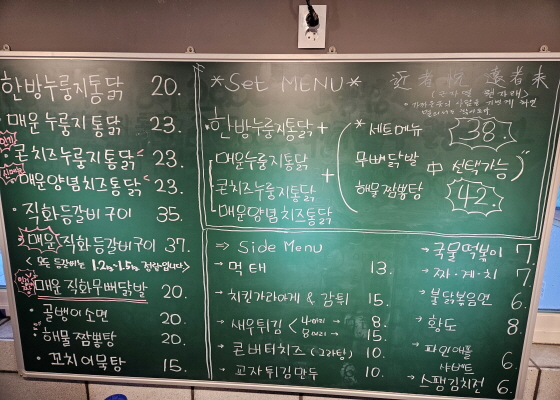 한방누룽지통닭 20.
매운 누룽지통닭 23.
콘치즈누룽지통닭 23.
매운양념치즈통닭 23.
· 직화등갈비구이 35.
매운 직화등갈비구이 37.
< 모든 등갈비는 1.2kg~1.5kg 정량입니다>
매운 직화무뼈닭발 20.
· 골뱅이소면 20.
· 해물짬뽕탕 20.
· 꼬치어묵탕 15.
*Set MENU*
· 한방누룽지통닭 +
매운누룽지통닭
콘치즈누룽지통닭
매운양념치즈통닭
+
* 세트메뉴
무뼈닭발
해물짬뽕탕
中 선택가능
38.
42.
近者悅 遠者來
⇒ Side Menu
→ 먹태 13.
→ 치킨가라아게 & 감튀 15.
→ 새우튀김 < 4마리 8.
8마리 15.
→ 콘버터치즈 (그라탕) 10.
→ 교자튀김만두 10.
→ 국물떡볶이 7.
→ 짜·계·치 7.
→ 불닭볶음면 6.
→ 황도 8.
→ 파인애플
샤벳트 6.
→ 스팸김치전 6.